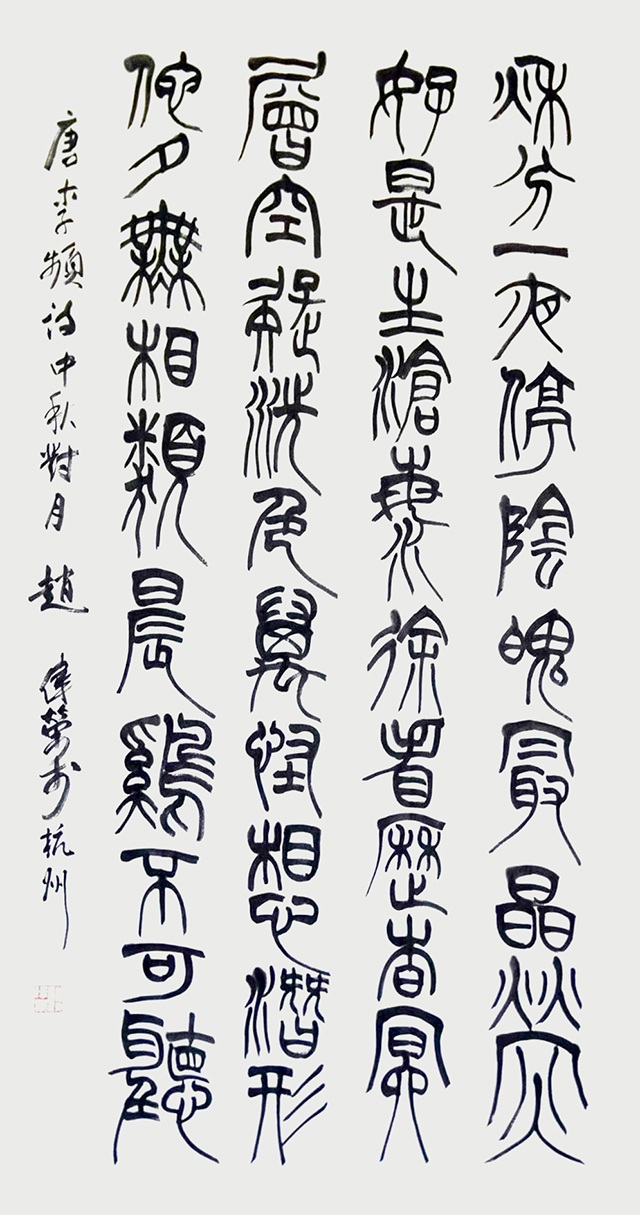 秌分一夜停陰魄最晶熒
好是生滄海徐看歷杳冥
層空疑洗色萬怪想潛形
他夕無相類晨鷄不可聽
唐李頻詩中秋對月 趙偉榮於杭州